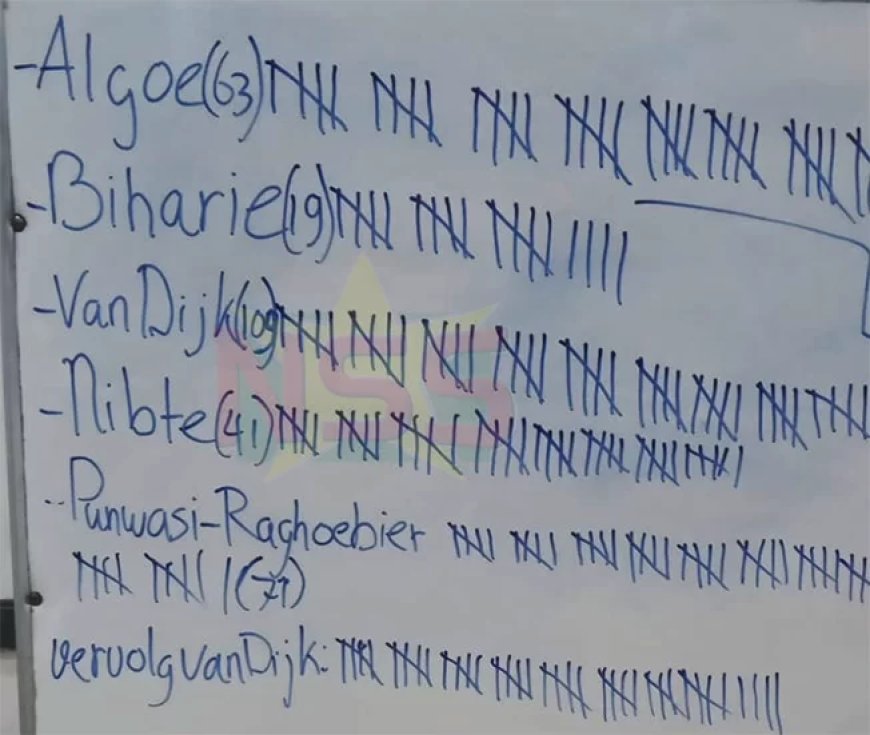 -Algoe(63)
-Biharie(19)
-Van Dijk(109)
-Nibte(41)
-Punwasi-Raghoebier
(71)
vervolg van Dijk:
NSS